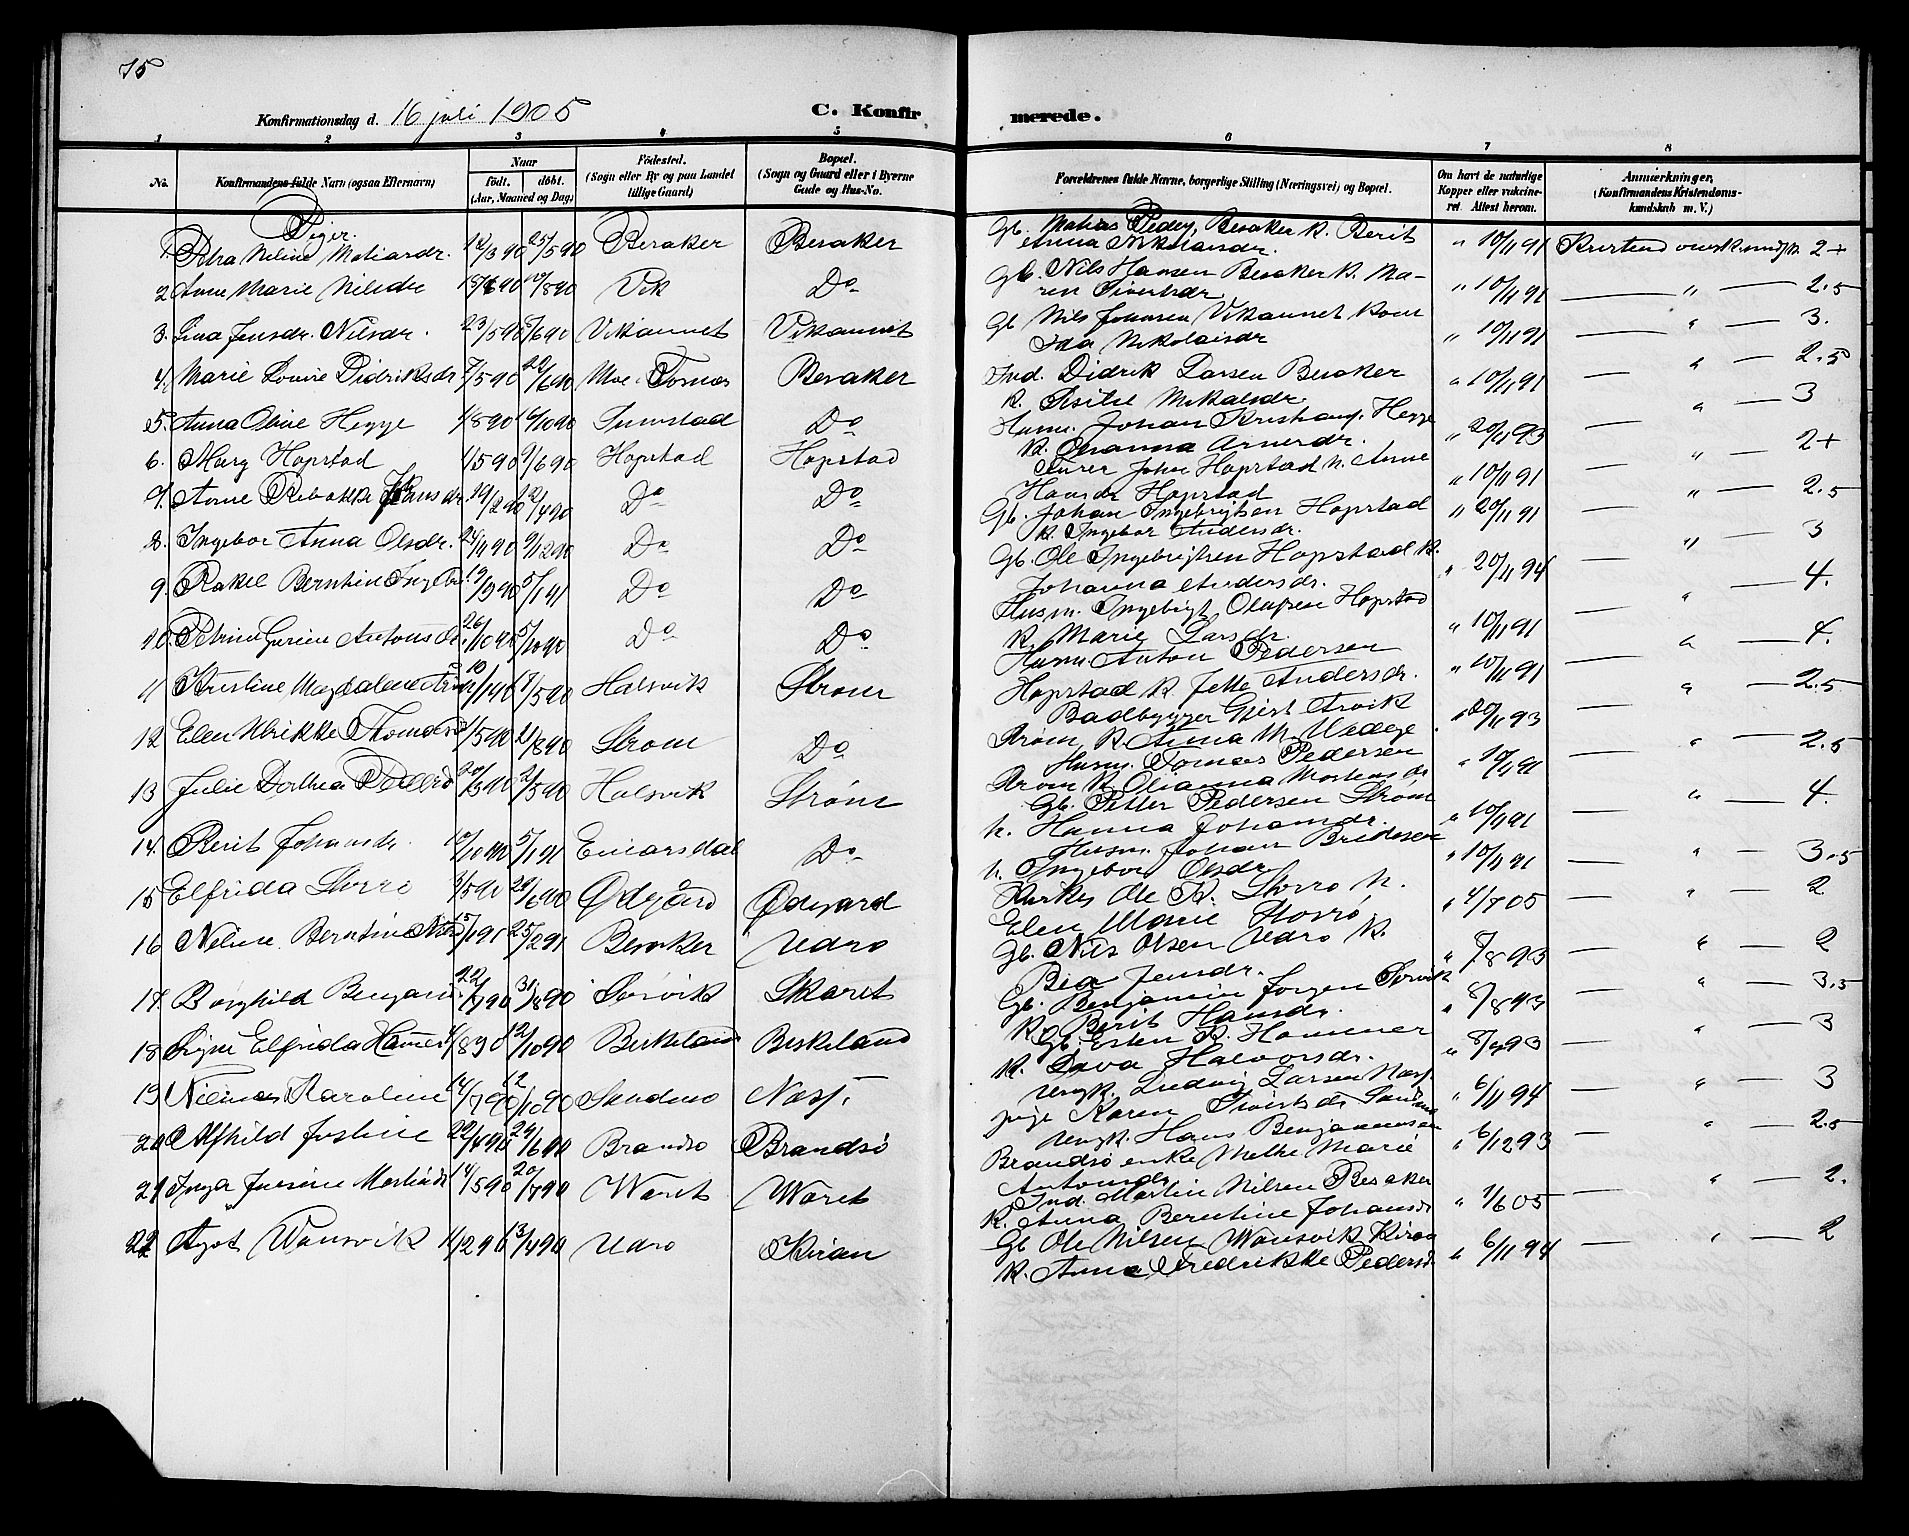 75
Konfirmationsdag d. 16 juli 1905 C. Konfirmerede.
1 2 3 4 5 6 7 8
No. Konfirmandens fulde Navn (ogsaa Efternavn) Naar født. døbt. (Aar, Maaned og Dag) Fødested. (Sogn eller By og paa Landet tillige Gaard) Bopæl. (Sogn og Gaard eller i Byerne Gade og Hus-No. Forældrenes fulde Navne, borgerlige Stilling (Næringsvei) og Bopæl. Om havt de naturlige Kopper eller vakcineret. Attest herom. Anmærkninger, (Konfirmandens Kristendomskundskab m. V.)
Piger.
1. Petra Meline Matiasdr. 12/3 90 25/5 90 Besaker Besaker Gb. Matias Peders. Besaker k. Berit Anna Nikolaisdr. " 10/11 91 2+
2 Anne Marie Nilsdr 15/6 90 10/8 90 Vik Do Gb. Nils Hansen Besaker k. Maren Sivertsdr " 10/11 91 " 2.5
3. Lina Jensdr. Nilsdr. 23/5 90 /6 90 Vikaunet Vikaunet Gb Nils Johnsen Vikaunet Kone Ida Nikolaisdr " 10/11 91 " 3.
4. Marie Lovise Didriksdr 7/5 90 22/6 90 Moe Tornes Besaker Ind. Didrik Larsen Besaker k. Mikalsdr. " 10/11 91 " 2.5
5. Anna Oline Hegge 1/8 90 16/10 90 Sumstad Do Husm. Johan Kristians. Hegge k. Oleanna Arnesdr. " 20/11 93 " 3
6. Marg Hopstad 1/5 90 9/6 90 Hopstad Hopstad John Hopstad h. Anne Hansdr Hopstad " 10/11 91 " 2+
7. Anne Rebekka Johansdr 19/2 90 12/4 90 Do Do Gb. Johan Ingebrigtsen Hopstad k. Ingebor Andersdr. " 20/11 91 " 2.5
8. Ingebor Anna Olsdr. 24/11 90 9/12 90 Do Do Gb. Ole Ingebrigtsen Hopstad k. Johanna Andersdr. " 20/11 94 " 3
9. Rakel Berntine Ingebr 19/9 90 5/1 91 Do Do Husm. Ingebrigt Olufsen Hopstad k. Marie Larsdr. " 10/11 91 " 4.
10. Petrine Gurine Antonsdr. 26/10 90 5/10 90 Do Do Husm. Anton Pedersen Hopstad k. Jette Andersdr. " 10/11 91 " 4.
11 Kristine Magdalene 19/1 90 1/5 90 Halsvik Strøm Baadbygger Gjert Arvik Strøm k. Anna M. Wedege " 20/11 93 " 2.5
12 Elen Ulrikke Thomasdr 1/5 90 21/8 90 Strøm Do Husm. Tomas Pedersen Strøm k. Oleanna Mortensdr " 10/11 91 " 2.5
13 Julie Dorthea Pettersd 20/3 90 2/5 90 Halsvik Strøm Gb. Petter Pedersen Strøm h. Hanna Johansdr. " 10/11 91 " 4.
14. Berit Johansdr 10/10 90 5/1 91 Einarsdal Do Husm. Johan h. Ingebor Olsdr. " 10/11 91 " 3.5
15 Elfrida Storrø 3/5 90 29/6 90 Ødegård Ødegaard Ole K. Storrø h. Elen Marie Storrø " 4/7 05 " 2
16 Neline Berntine Nilsd 5/1 91 25/2 91 Besaker Udrø Gb. Nils Olsen Udrø k. Bea Jensdr. " 8/8 93 " 2
17. Borghild Benjam. 22/7 90 31/8 90 Sørvik Skaret Gb. Benjamin Jørgen Sørvik k. Berit Hansdr. " 8/8 93 " 3.5
18 Signe Elfrida Hammer /8 90 12/10 90 Birkeland Birkeland Gb. Esten K. Hammer k. Dova Halvorsdr. " 8/7 93 " 3
19 Karoline 14/7 90 12/10 90 Næsj. Ungk. Ludvig Larsen Næsj. pige Karen Sivertsdr " 6/11 94 " 3
20 Alfhild Justine 22/4 90 29/6 90 Brandsø Brandsø Ungk. Hans Benjaminsen Brandsø enke Methe Marie Antonsdr " 6/12 93 " 2.5
21 Inga Jensine Martinsd 14/5 90 20/7 90 Waret Waret Ind. Martin Nilsen Besaker k. Anna Berntine Johansdr " 1/6 05 " 2.
22 Agot Wansvik 11/2 90 13/4 90 Udrø Kiran Gb Ole Nilsen Wansvik Kiran k. Anna Fredrikke Pedersd " 6/11 94 " 2